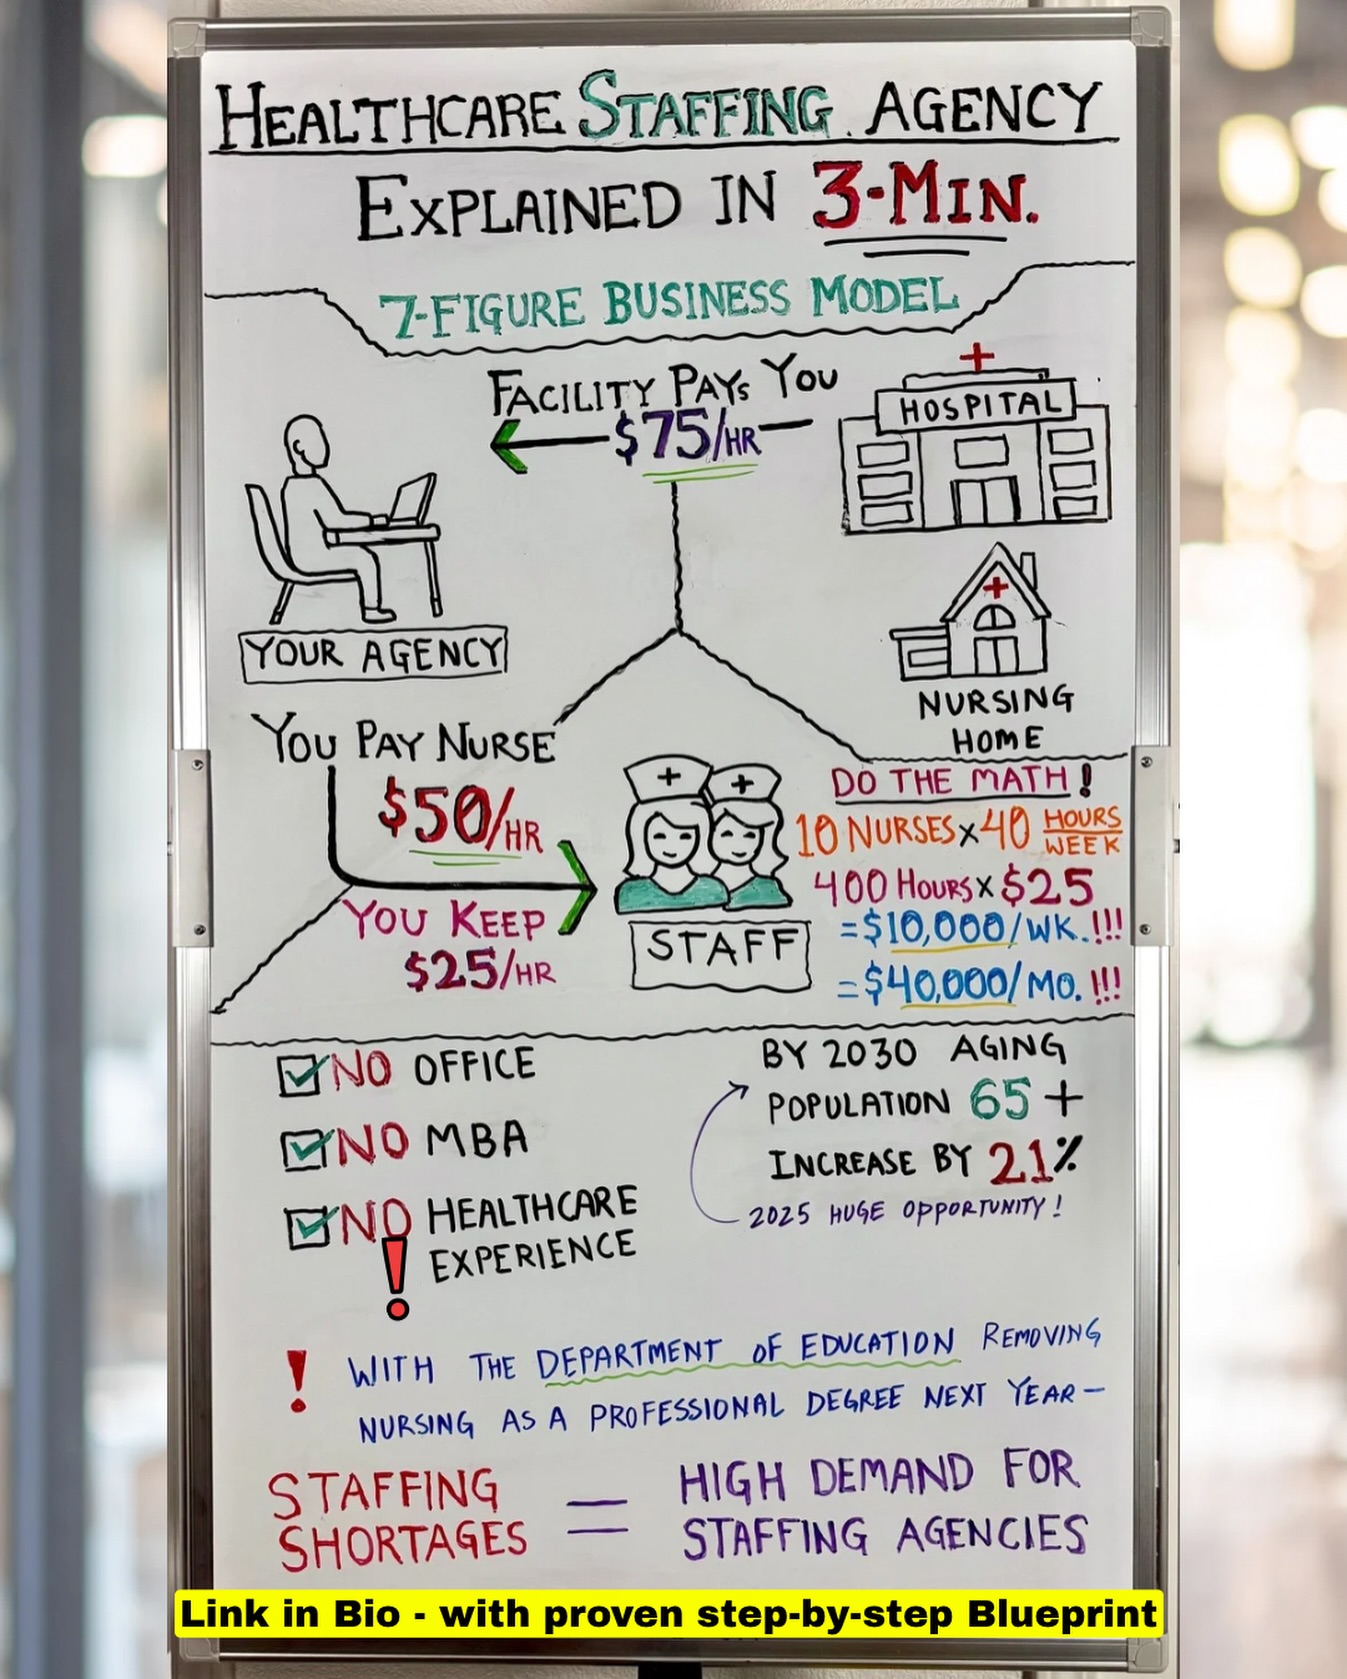 HEALTHCARE STAFFING AGENCY
EXPLAINED IN 3-MIN.
7-FIGURE BUSINESS MODEL
FACILITY PAYS YOU
$75/HR
HOSPITAL
YOUR AGENCY
NURSING
HOME
YOU PAY NURSE
$50/HR
YOU KEEP
$25/HR
STAFF
DO THE MATH!
10 NURSES x 40 HOURS/WEEK
400 HOURS x $25
=$10,000/WK.!!!
=$40,000/MO.!!!
NO OFFICE
NO MBA
NO HEALTHCARE
EXPERIENCE
!
BY 2030 AGING
POPULATION 65+
INCREASE BY 21%
2025 HUGE OPPORTUNITY!
! WITH THE DEPARTMENT OF EDUCATION REMOVING
NURSING AS A PROFESSIONAL DEGREE NEXT YEAR-
STAFFING
SHORTAGES
=
HIGH DEMAND FOR
STAFFING AGENCIES
Link in Bio - with proven step-by-step Blueprint